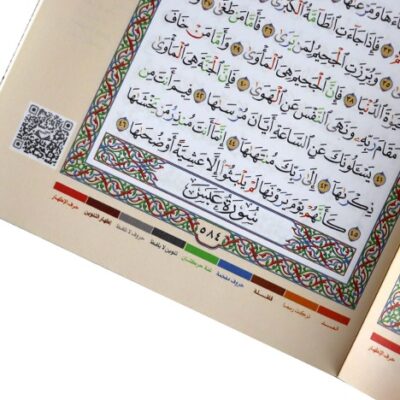 فَإِذَا جَآءَتِ ٱلطَّآمَّةُ ٱلْكُبْرَىٰ
وَبُرِّزَتِ ٱلْجَحِيمُ لِمَن يَرَىٰ ٣٦ فَأَمَّا مَن طَغَىٰ ٣٧
ٱلدُّنْيَا ٣٨ فَإِنَّ ٱلْجَحِيمَ هِيَ ٱلْمَأْوَىٰ ٣٩ وَأَمَّا مَنْ خَافَ
مَقَامَ رَبِّهِۦ وَنَهَى ٱلنَّفْسَ عَنِ ٱلْهَوَىٰ ٤٠ فَإِنَّ ٱلْجَنَّةَ هِيَ ٱلْمَأْوَىٰ
٤١ يَسْـَٔلُونَكَ عَنِ ٱلسَّاعَةِ أَيَّانَ مُرْسَىٰهَا ٤٢ فِيمَ أَنتَ مِن
ذِكْرَىٰهَآ ٤٣ إِلَىٰ رَبِّكَ مُنتَهَىٰهَآ ٤٤ إِنَّمَآ أَنتَ مُنذِرُ مَن يَخْشَىٰهَا
٤٥ كَأَنَّهُمْ يَوْمَ يَرَوْنَهَا لَمْ يَلْبَثُوٓا۟ إِلَّا عَشِيَّةً أَوْ ضُحَىٰهَا ٤٦
سُورَةُ عَبَسَ
٥٨٤
حرف الإظهار
إظهار التنوين
حروف لا تلفظ
تنوين لا يلفظ
غنة حركتان
حروف مفخمة
قلقلة
حرف الإظهار